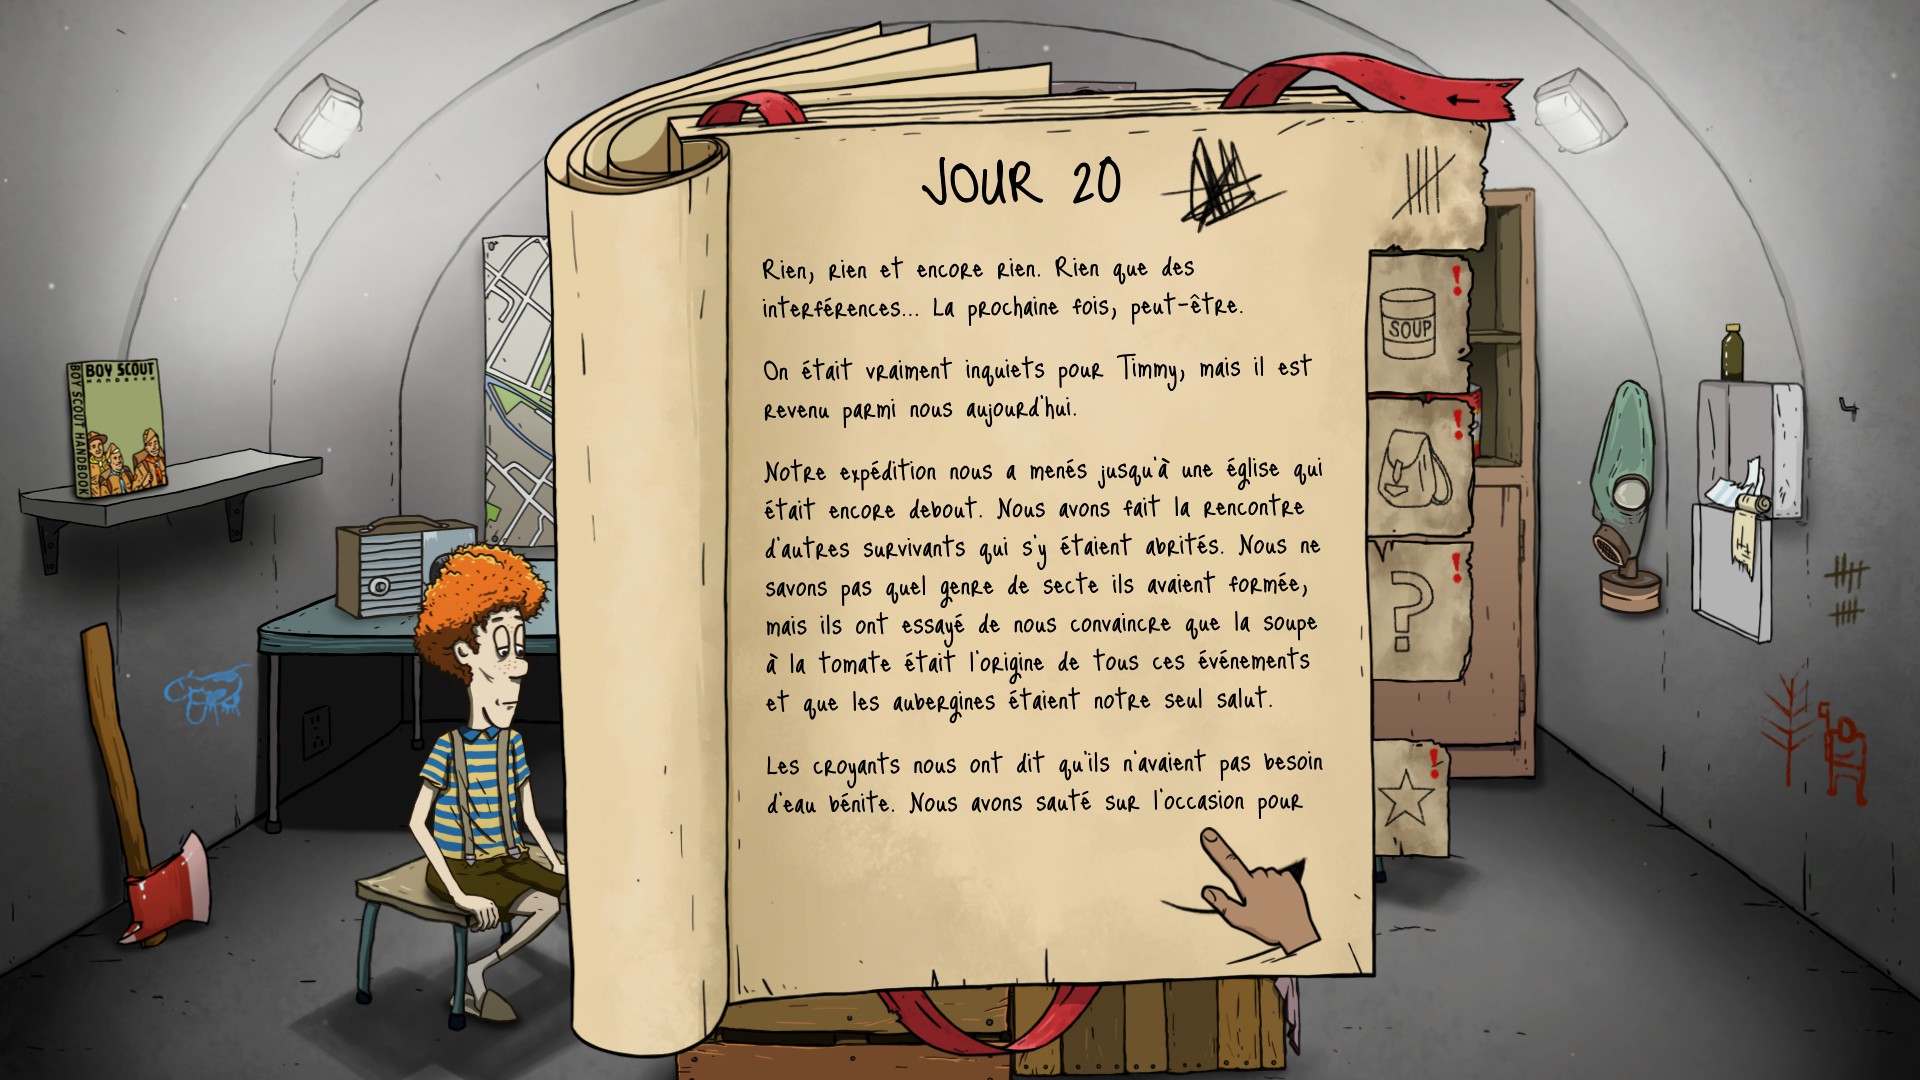 JOUR 20
Rien, rien et encore rien. Rien que des
interférences... La prochaine fois, peut-être.
On était vraiment inquiets pour Timmy, mais il est
revenu parmi nous aujourd'hui.
Notre expédition nous a menés jusqu'à une église qui
était encore debout. Nous avons fait la rencontre
d'autres survivants qui s'y étaient abrités. Nous ne
savons pas quel genre de secte ils avaient formée,
mais ils ont essayé de nous convaincre que la soupe
à la tomate était l'origine de tous ces événements
et que les aubergines étaient notre seul salut.
Les croyants nous ont dit qu'ils n'avaient pas besoin
d'eau bénite. Nous avons sauté sur l'occasion pour
!
SOUP
!
!
?
!
BOY SCOUT
HANDBOOK
BOY SCOUT HANDBOOK